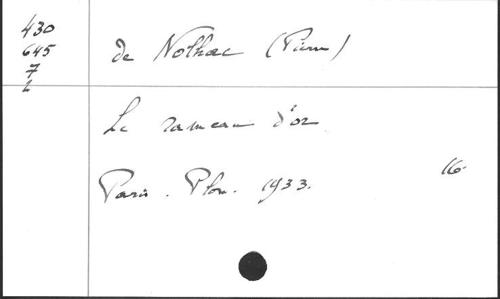 430
645
7
de Nolhac (Pierre)
Le rameau d'or
Paris. Plon. 1933.
16